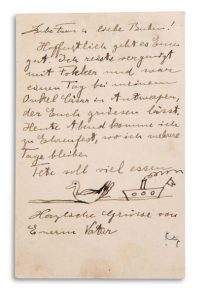 Liebe Frau u. liebe Buben!
Hoffentlich geht es Euch
gut. Ich reiste vergnügt
mit Fokker und war
einen Tag bei meinem
Onkel Cäsar in Antwerpen,
der Euch grüssen lässt.
Heute Abend komme ich
zu Ehrenfest, wo ich mehrere
Tage bleibe.
Tete soll viel essen
Herzliche Grüsse von
Eurem Vatter